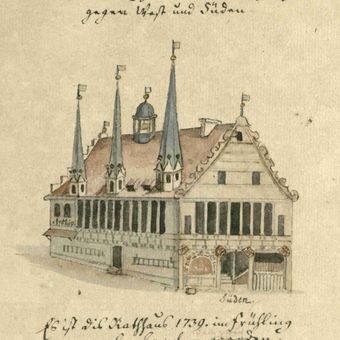 gegen West und Süden
Archiv
Süden.
Es ist dis Rathhaus 1739. im Frühling